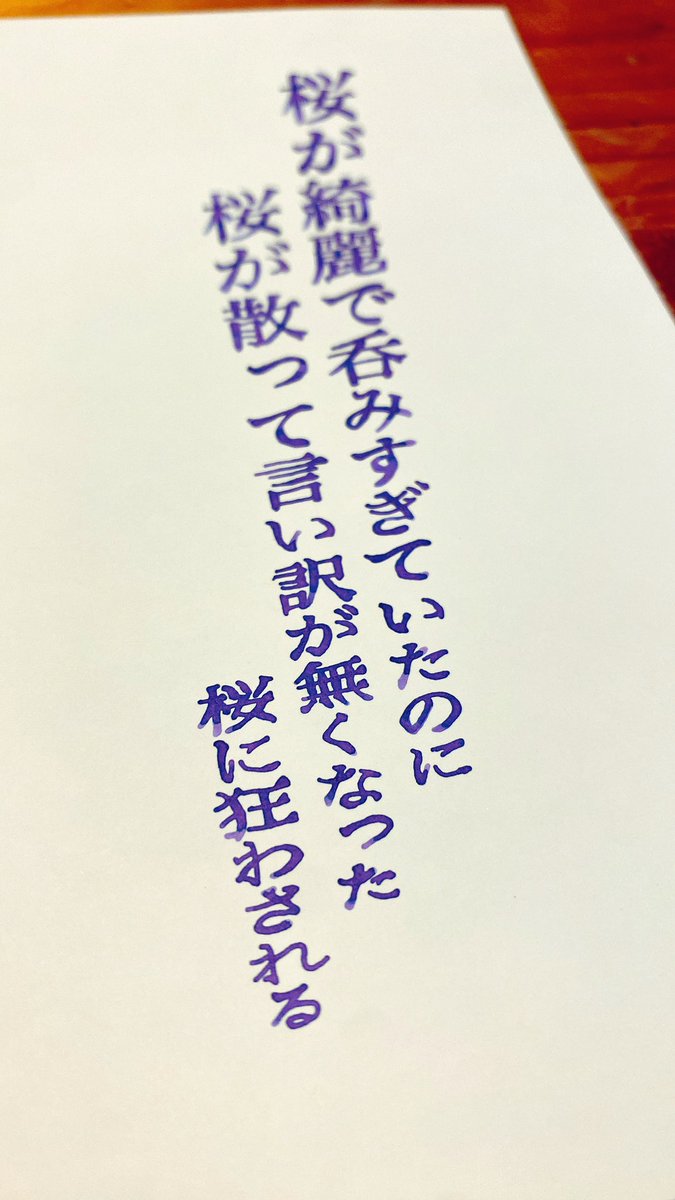 桜が綺麗で呑みすぎていたのに
桜が散って言い訳が無くなった
桜に狂わされる